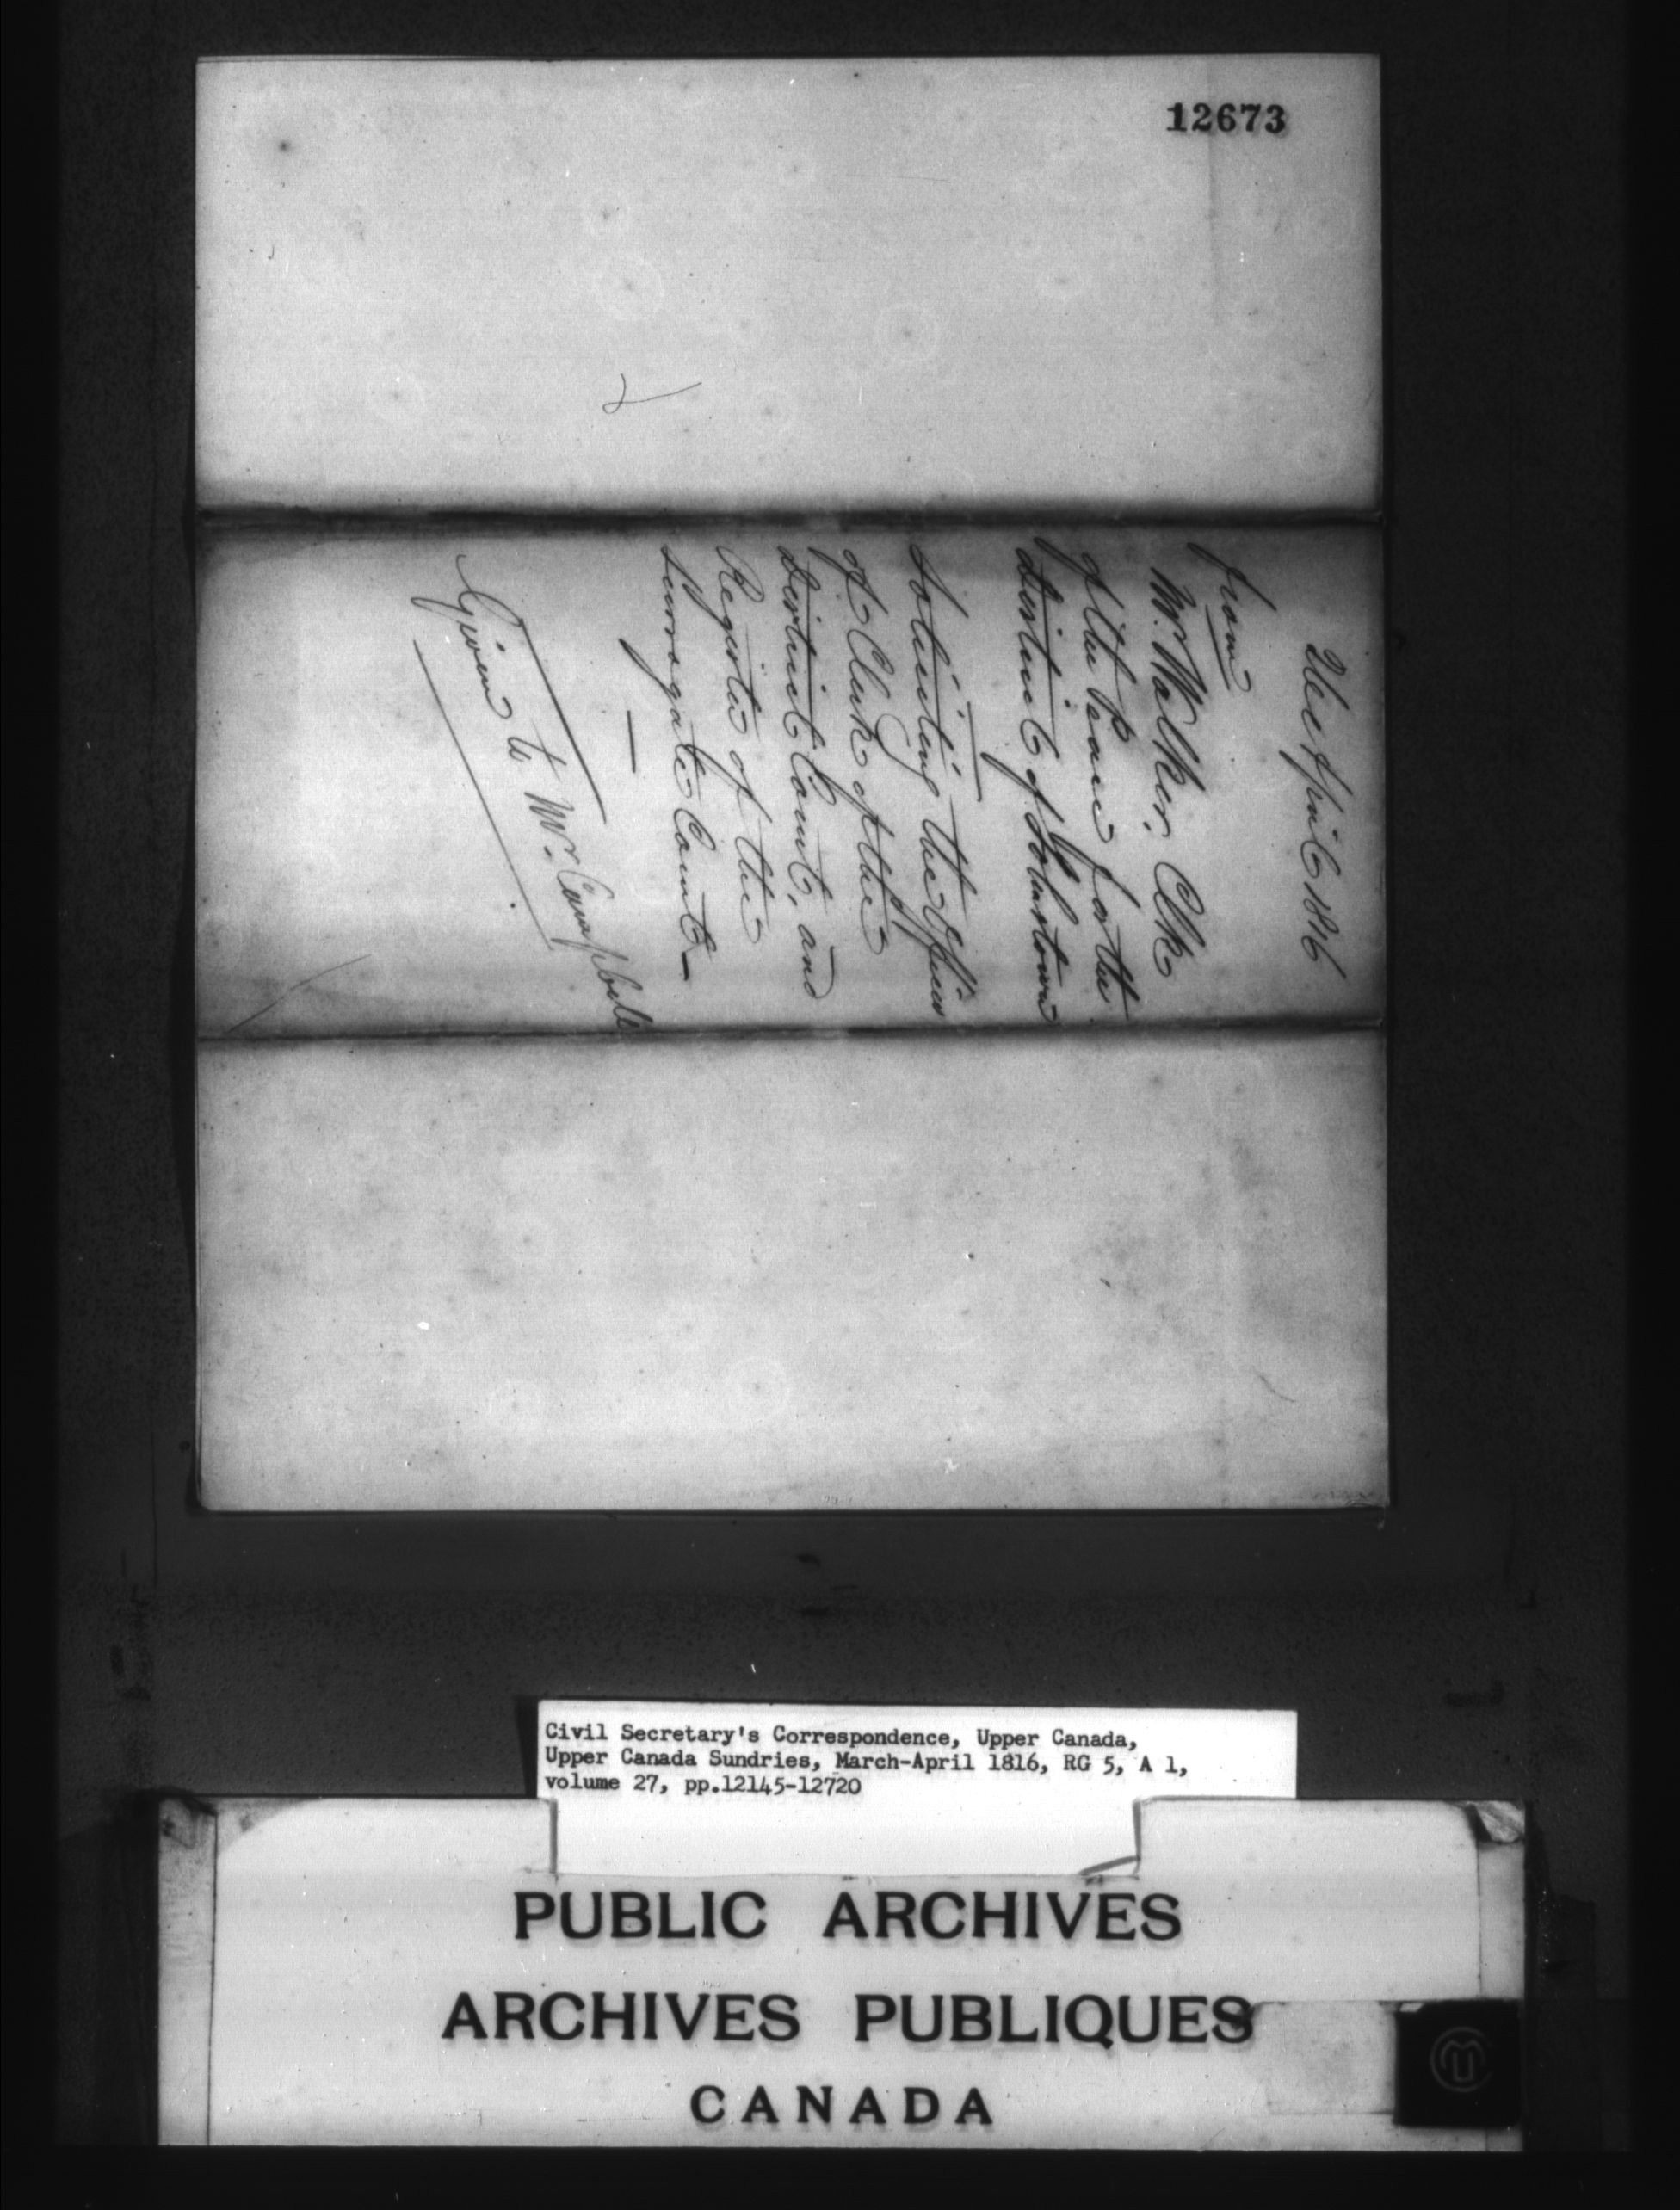 12673
April 1816
From
Mr. Walker, Clk
of the Peace for the
District of Johnstown
Soliciting the Offices
of Clerk of the
District Court, and
Register of the
Surrogate Court
Given to Mr. Campbell
Civil Secretary's Correspondence, Upper Canada,
Upper Canada Sundries, March-April 1816, RG 5, A 1,
volume 27, pp.12145-12720
PUBLIC ARCHIVES
ARCHIVES PUBLIQUES
CANADA